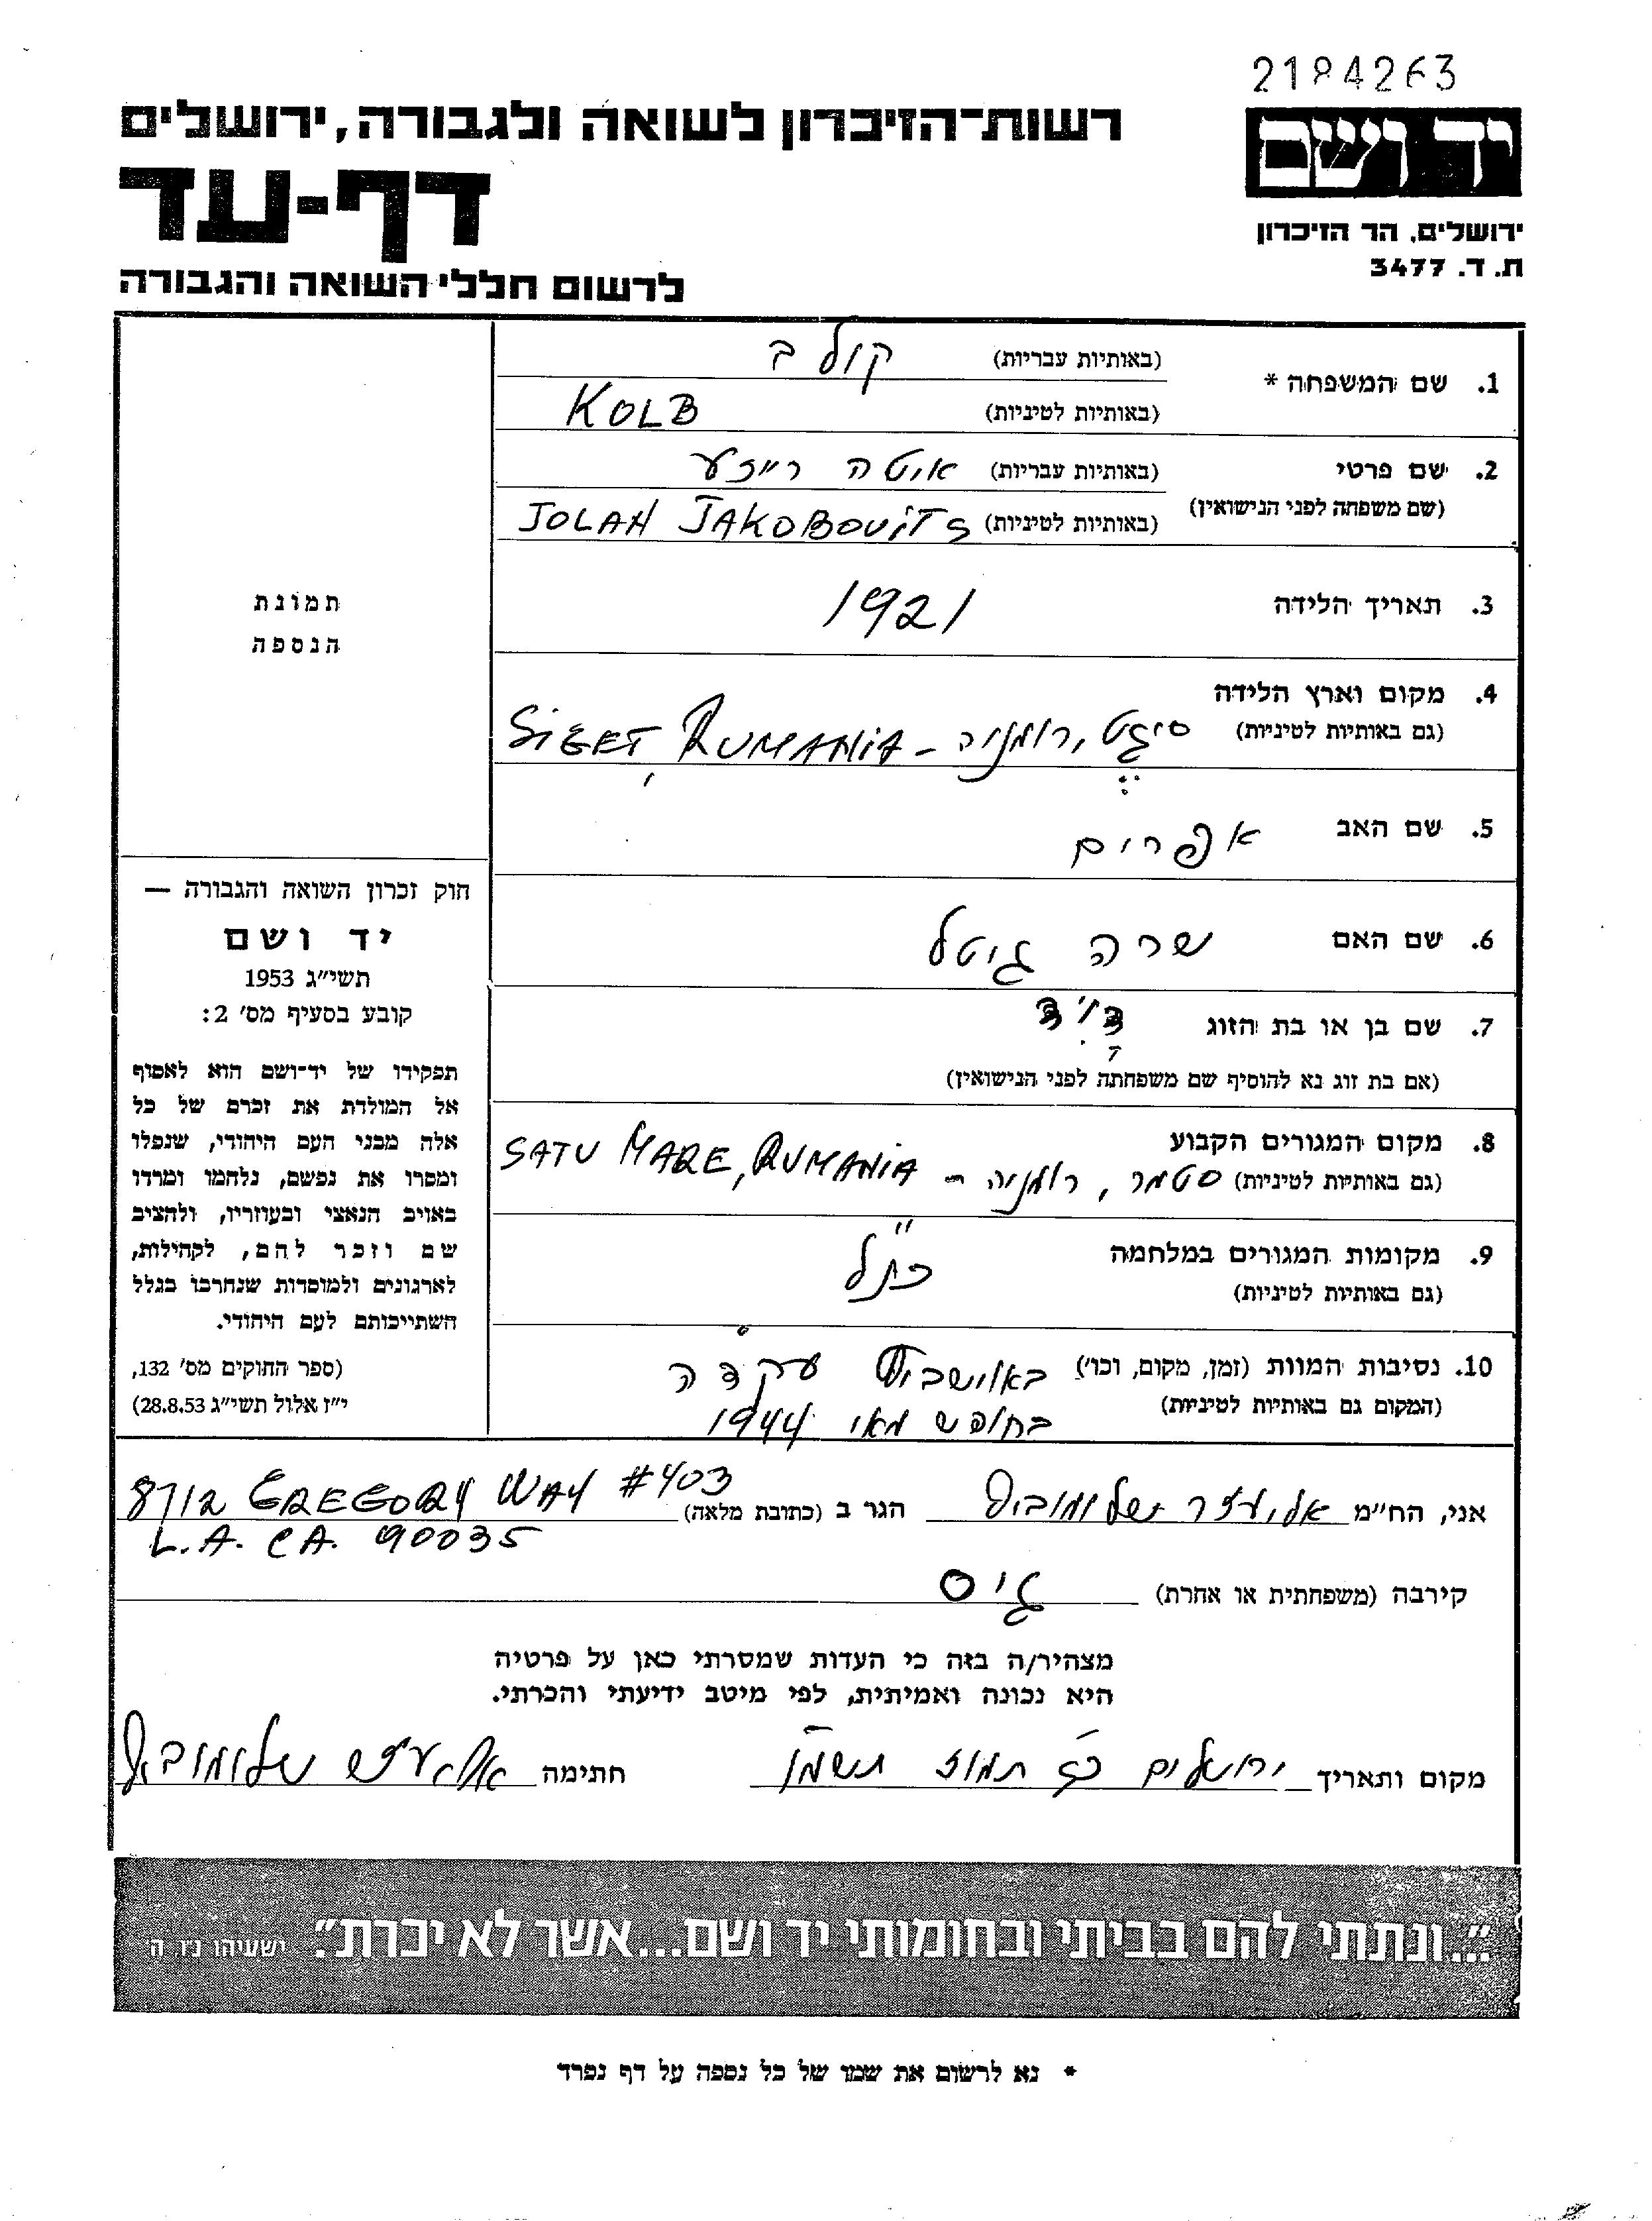 2184263
רשות־הזיכרון לשואה ולגבורה, ירושלים
יד ושם
דף-עד
ירושלים, הר הזיכרון
ת. ד. 3477
לרשום חללי השואה והגבורה
1. שם המשפחה * (באותיות עבריות) קולב
(באותיות לטיניות) KOLB
2. שם פרטי (באותיות עבריות) איטה רייזע
(שם משפחה לפני הנישואין) (באותיות לטיניות) JOLAN JAKOBOVITS
3. תאריך הלידה 1921
4. מקום וארץ הלידה
(גם באותיות לטיניות) סיגט, רומניה - SIGET, RUMANIA
5. שם האב אפרים
6. שם האם שרה גיטל
7. שם בן או בת הזוג דוד
(אם בת זוג נא להוסיף שם משפחתה לפני הנישואין)
8. מקום המגורים הקבוע
(גם באותיות לטיניות) סטמר, רומניה - SATU MARE, RUMANIA
9. מקומות המגורים במלחמה כנ"ל
(גם באותיות לטיניות)
10. נסיבות המוות (זמן, מקום, וכו') באושביץ עקדה
(המקום גם באותיות לטיניות) בחופש מאי 1944
תמונת
הנספה
חוק זכרון השואה והגבורה —
יד ושם
תשי"ג 1953
קובע בסעיף מס' 2:
תפקידו של יד־ושם הוא לאסוף
אל המולדת את זכרם של כל
אלה מבני העם היהודי, שנפלו
ומסרו את נפשם, נלחמו ומרדו
באויב הנאצי ובעוזריו, ולהציב
שם וזכר להם, לקהילות,
לארגונים ולמוסדות שנחרבו בגלל
השתייכותם לעם היהודי.
(ספר החוקים מס' 132,
י"ז אלול תשי"ג 28.8.53)
אני, הח"מ אליעזר שלומוביץ הגר ב (כתובת מלאה) 8712 GREGORY WAY #403
L.A. CA. 90035
קירבה (משפחתית או אחרת) גיס
מצהיר/ה בזה כי העדות שמסרתי כאן על פרטיה
היא נכונה ואמיתית, לפי מיטב ידיעתי והכרתי.
מקום ותאריך ירושלים כז תמוז חתימה אליעזר שלומוביץ
"...ונתתי להם בביתי ובחומותי יד ושם...אשר לא יכרת". ישעיהו נ"ו, ה
* נא לרשום את שמו של כל נספה על דף נפרד